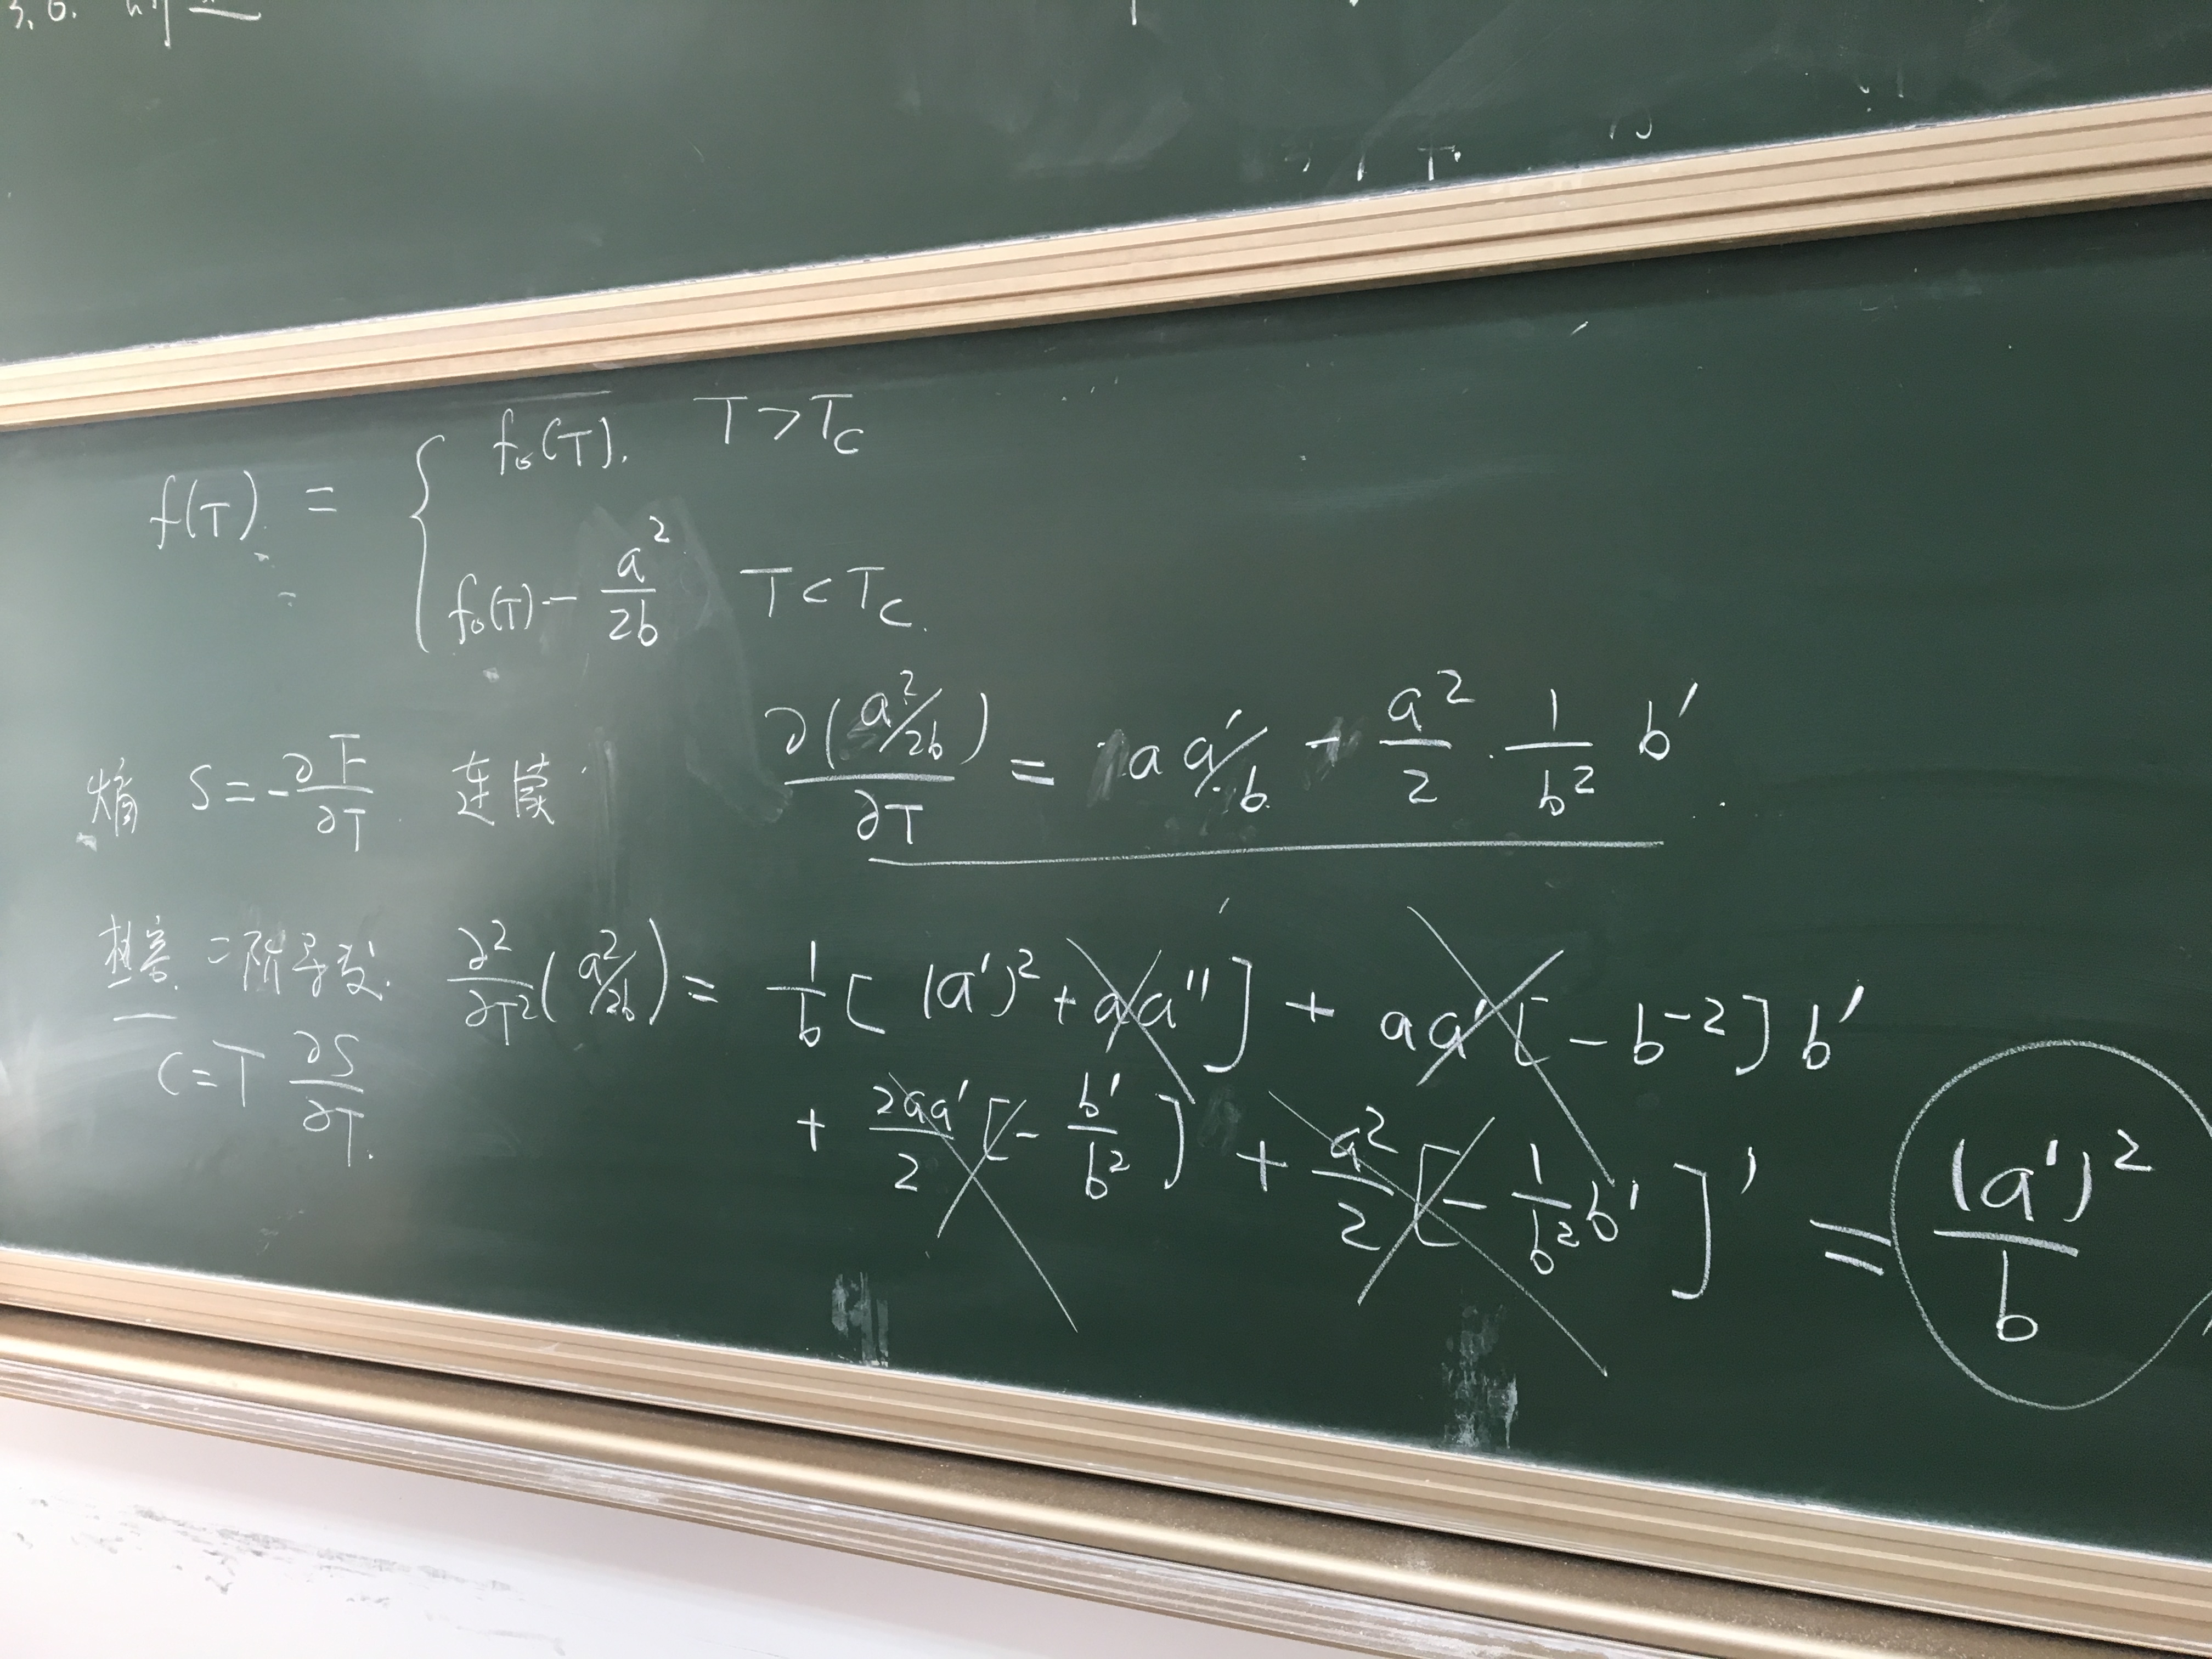 3.6.
f(T) = { f₀(T), T > T_C
f₀(T) - a²/2b T < T_C.
熵 S = -∂F/∂T 连续 ∂(a²/2b)/∂T = aa'/b - a²/2 · 1/b² b'
热容 二阶导数. ∂²/∂T² (a²/2b) = 1/b [ (a')² + aa'' ] + aa' [ -b⁻² ] b'
C = T ∂S/∂T. + 2aa'/2 [ - b'/b² ] + a²/2 [ - 1/b² b' ]' = (a')²/b